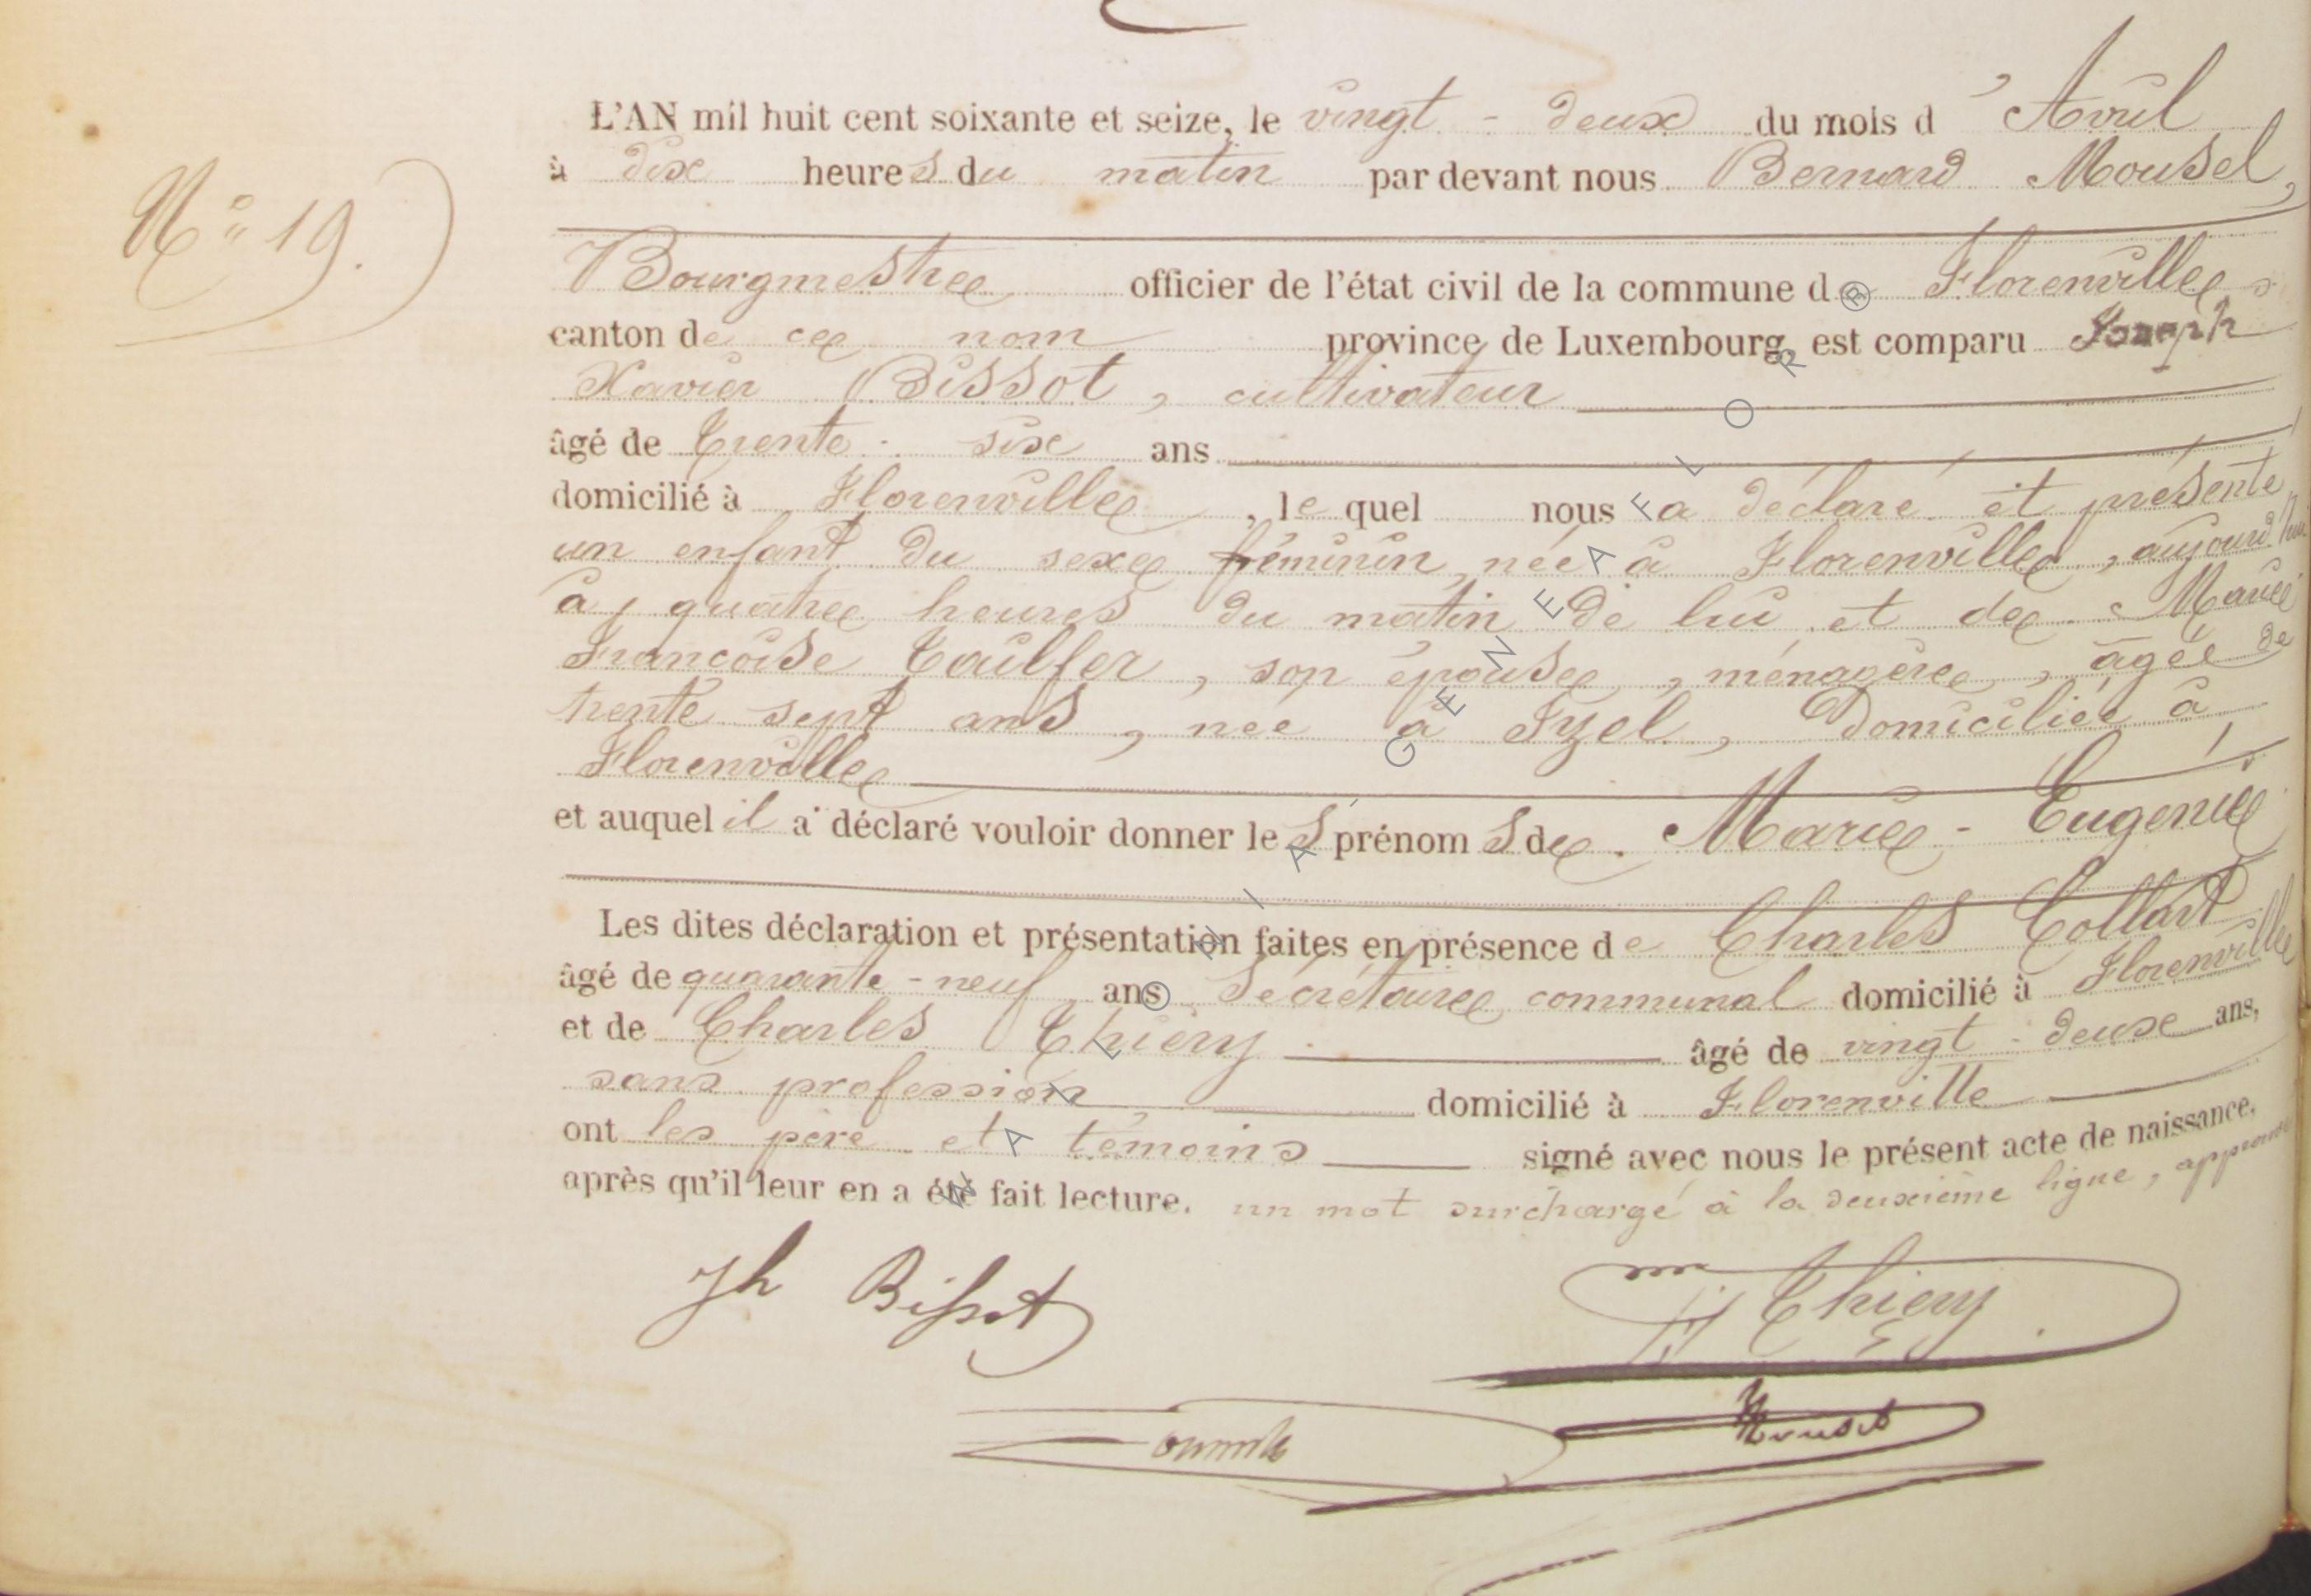 L'AN mil huit cent soixante et seize, le vingt - deux du mois d'Avril
à dix heures du matin par devant nous Bernard Mousel,
N° 19.
Bourgmestre officier de l'état civil de la commune de Florenville,
canton de ce nom province de Luxembourg, est comparu Joseph
Xavier Bissot, cultivateur
âgé de trente-six ans
domicilié à Florenville, lequel nous a déclaré et présenté
un enfant du sexe féminin, née à Florenville, aujourd'hui
à quatre heures du matin de lui et de Marie
Françoise Toulfer, son épouse, ménagère, âgée de
trente sept ans, née à Izel, domiciliée à
Florenville
et auquel il a déclaré vouloir donner les prénoms de Marie-Eugenie
Les dites déclaration et présentation faites en présence de Charles Collart
âgé de quarante-neuf ans Secrétaire communal domicilié à Florenville
et de Charles Thiery âgé de vingt-deux ans,
sans profession domicilié à Florenville
ont les père et témoins signé avec nous le présent acte de naissance,
après qu'il leur en a été fait lecture. un mot surchargé à la deuxième ligne, approuvé
Jh Bissot
Thiery
Mousel